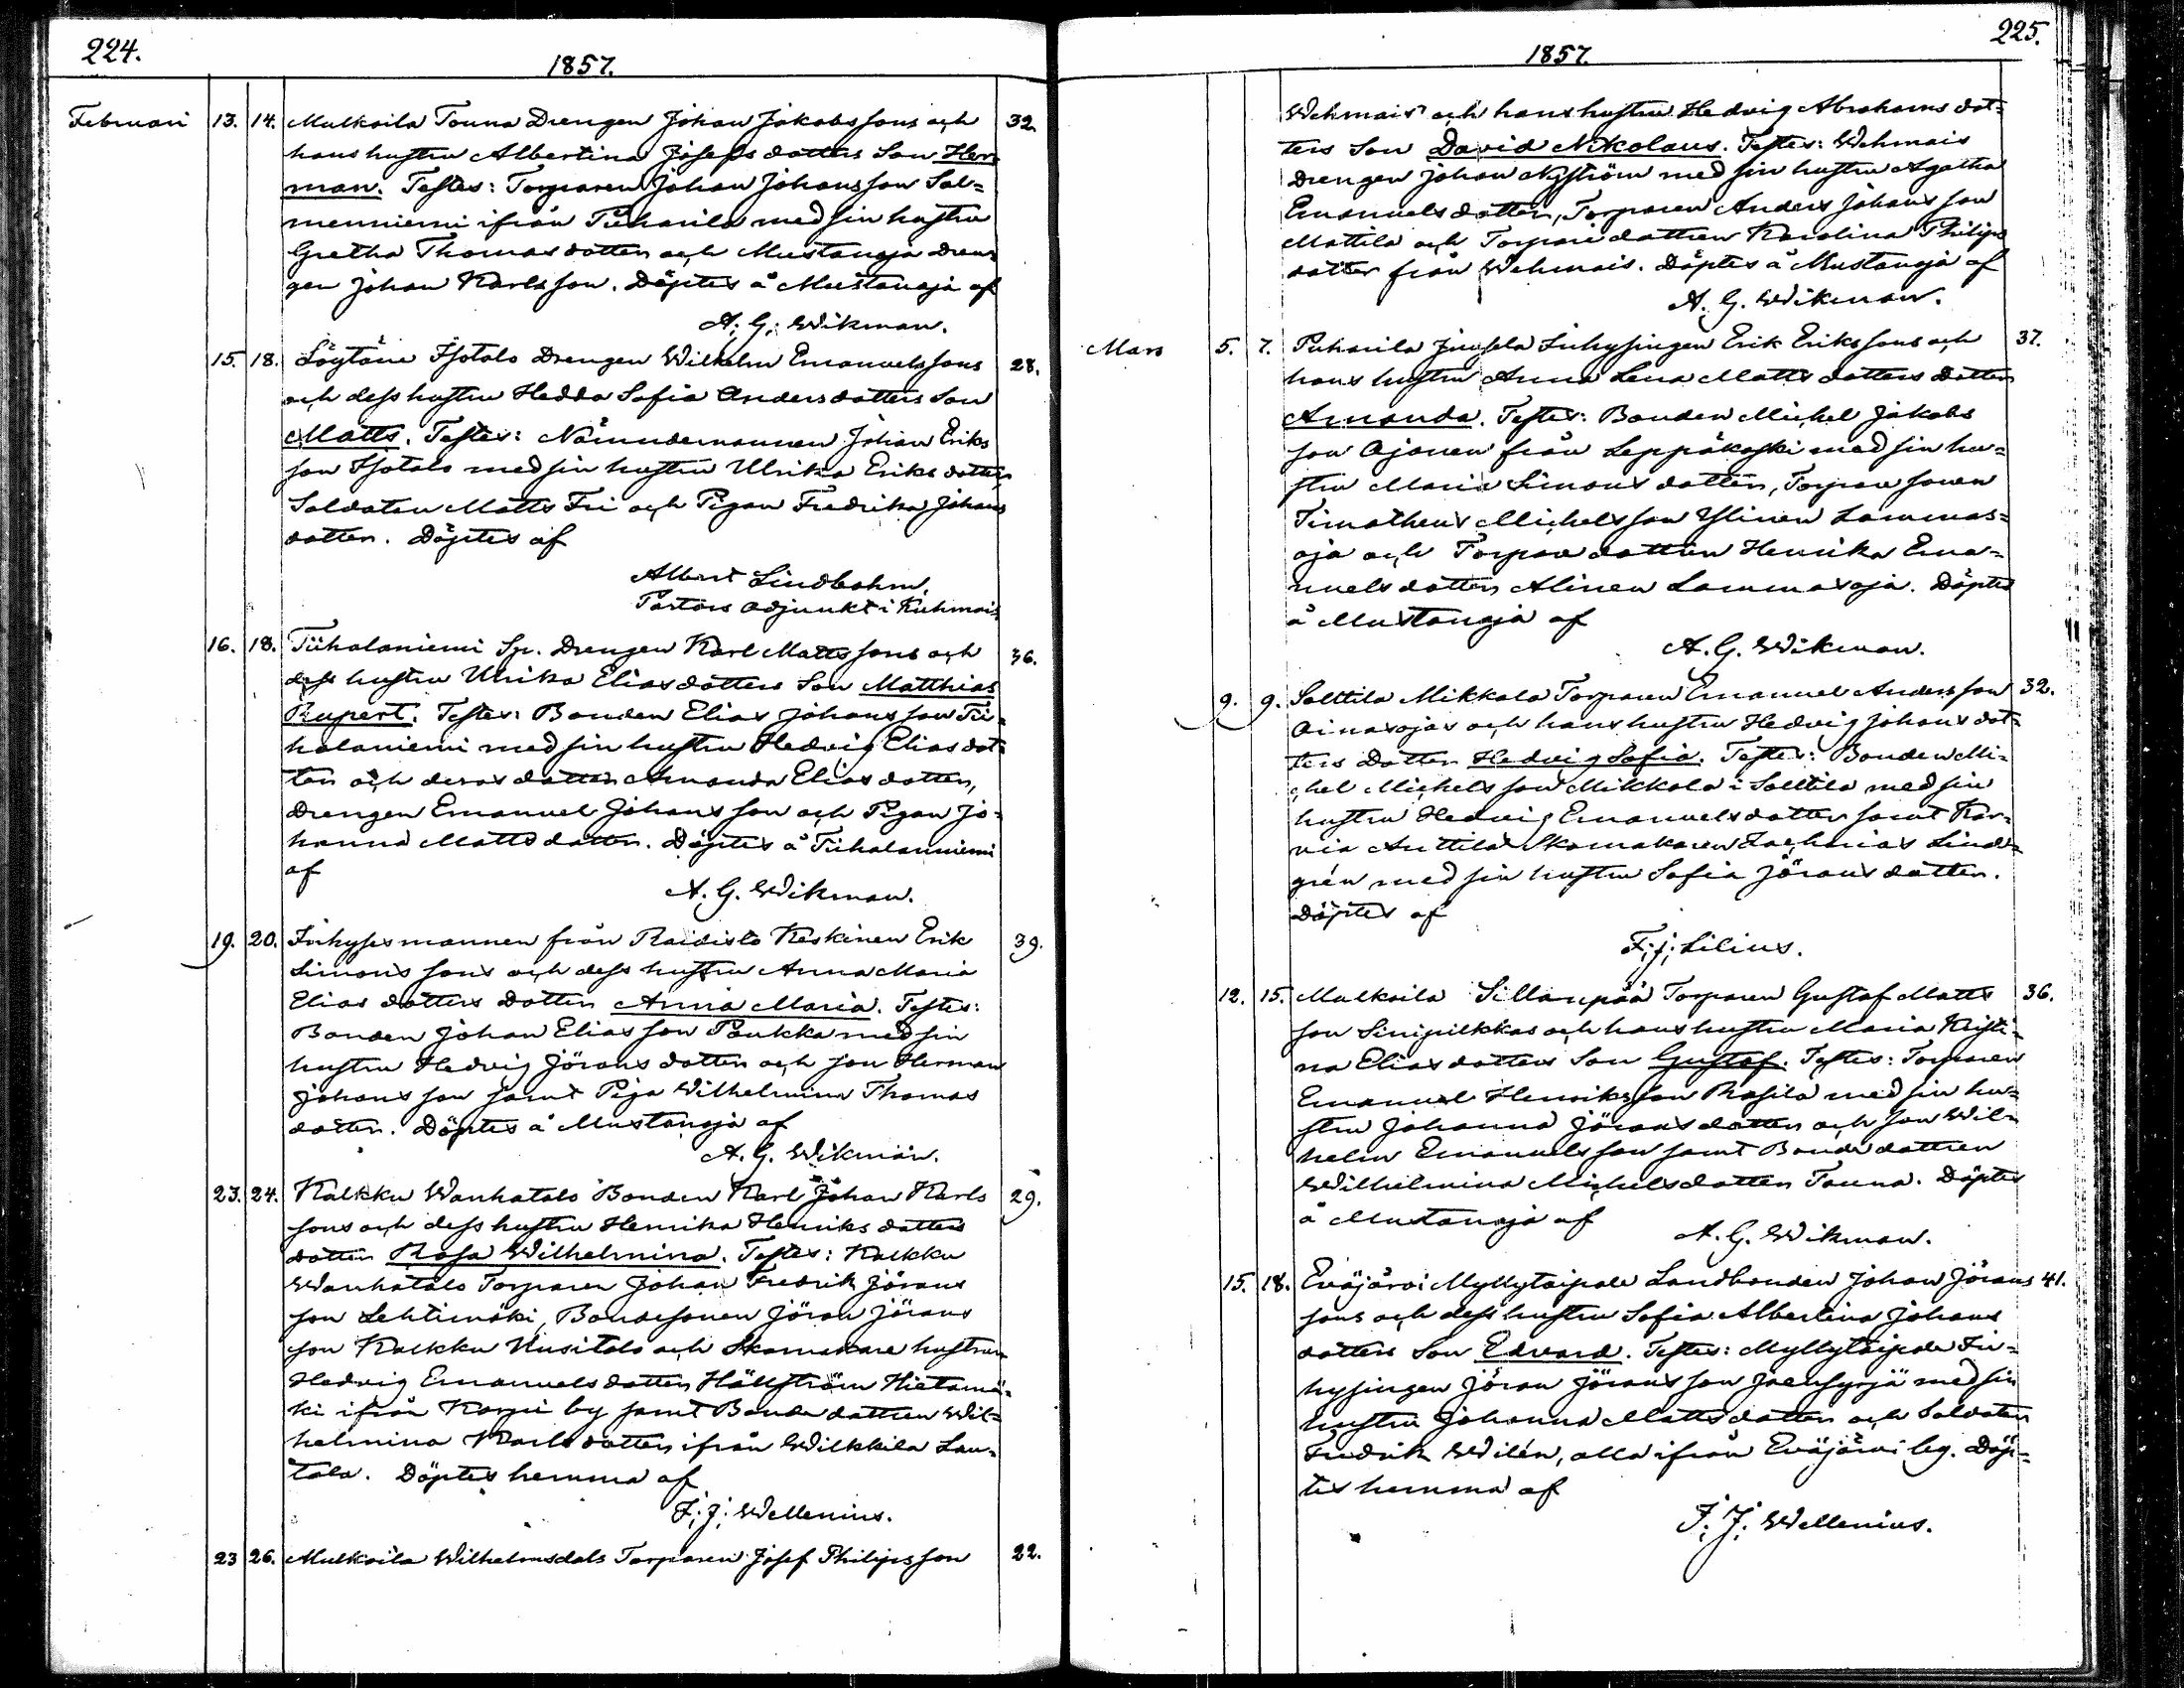 224.
1857.
Februari 13. 14. Mulkoila Touna Drengen Johan Jakobssons och 32.
hans hustru Albertina Josefsdotters Son Her-
man. Testes: Torparen Johan Johansson Sal=
menniemi ifrån Puharila med sin hustru
Gretha Thomasdotter och Mustanoja Dren-
gen Johan Karlsson. Döptes å Mustanoja af
A; G; Wikman.
15. 18. Löytäne Isotalo Drengen Wilhelm Emanuelssons 28.
och dess hustru Hedda Sofia Andersdotters Son
Matts. Testes: Nämndemannen Johan Eriks
son Isotalo med sin hustru Ulrika Eriksdotter
Soldaten Matts Fri och Pigan Fredrika Johans
dotter. Döptes af
Albert Lindbohm,
Pastors adjunkt i Kuhmois
16. 18. Tiihalaniemi Sp. Drengen Karl Mattssons och 36.
dess hustru Ulrika Eliasdotters Son Matthias
Rupert. Testes: Bonden Elias Johansson Tii-
halaniemi med sin hustru Hedvig Eliasdot-
ter och deras dotter Amanda Eliasdotter,
Drengen Emanuel Johansson och Pigan Jo-
hanna Mattsdotter. Döptes å Tiihalanniemi
af
A. G. Wikman.
19. 20. Inhysesmannen från Raidisto Keskinen Erik 39.
Simonssons och dess hustru Anna Maria
Eliasdotters Dotter Anna Maria. Testes:
Bonden Johan Eliasson Poukka med sin
hustru Hedvig Jöransdotter och son Herman
Johansson samt Piga Wilhelmina Thomas
dotter. Döptes å Mustanoja af
A. G. Wikman.
23. 24. Kalkku Wanhatalo Bonden Karl Johan Karls 29.
sons och dess hustru Henrika Henriksdotters
dotter Rosa Wilhelmina. Testes: Kalkku
Wanhatalo Torparen Johan Fredrik Jörans
son Lehtimäki, Bondesonen Jöran Jörans
son Kalkku Uusitalo och Skomakare hustrun
Hedvig Emanuelsdotter Hällström Hietamä-
ki ifrån Korpi by samt Bonde dottren Wil=
helmina Karlsdotter ifrån Wilkkila Lau-
tala. Döptes hemma af
F; J; Wellenius.
23 26. Mulkoila Wilhelmsdals Torparen Josef Philipsson 22.
225.
1857.
Wehmais och hans hustru Hedvig Abrahams dot=
ters Son David Nikolaus. Testes: Wehmais
Drengen Johan Nyström med sin hustru Agatha
Emanuelsdotter, Torparen Anders Johansson
Mattila och Torparedottren Karolina Philips
dotter från Wehmais. Döptes å Mustanoja af
A. G. Wikman.
Mars 5. 7. Puharila Juusela Inhysingen Erik Erikssons och 37.
hans hustru Anna Lena Mattsdotters Dotter
Amanda. Testes: Bonden Michel Jakobs
son Ojanen från Leppäkoski med sin hu=
stru Maria Simonsdotter, Torpare sonen
Timotheus Michelsson Ylinen Lammas=
oja och Torpare dottren Henrika Ema-
nuelsdotter Alinen Lammasoja. Döptes
å Mustanoja af
A. G. Wikman.
9. 9. Solttila Mikkola Torparen Emanuel Andersson 32.
Oinasojas och hans hustru Hedvig Johansdot-
ters Dotter Hedvig Sofia. Testes: Bonden Mi-
chel Michelsson Mikkola i Solttila med sin
hustru Hedvig Emanuelsdotter samt Kar-
via Anttila Skomakaren Zacharias Lind-
grén med sin hustru Sofia Jöransdotter.
Döptes af
F; J; Lilius.
12. 15. Mulkoila Sillanpää Torparen Gustaf Matts 36.
son Sinipilkkas och hans hustru Maria Kristi-
na Eliasdotters Son Gustaf. Testes: Torparen
Emanuel Henriksson Rasila med sin hu=
stru Johanna Jöransdotter och son Wil-
helm Emanuelsson samt Bondedottren
Wilhelmina Michelsdotter Touna. Döptes
å Mustanoja af
A. G. Wikman.
15. 18. Eväjärvi Myllytaipale Landbonden Johan Jörans 41.
sons och dess hustru Sofia Albertina Johans
dotters Son Edvard. Testes: Myllytaipale In-
hysingen Jöran Jöransson Joensyrjä med sin
hustru Johanna Mattsdotter och Soldaten
Fredrik Wilén, alla ifrån Eväjärvi by. Döp-
tes hemma af
F; J; Wellenius.